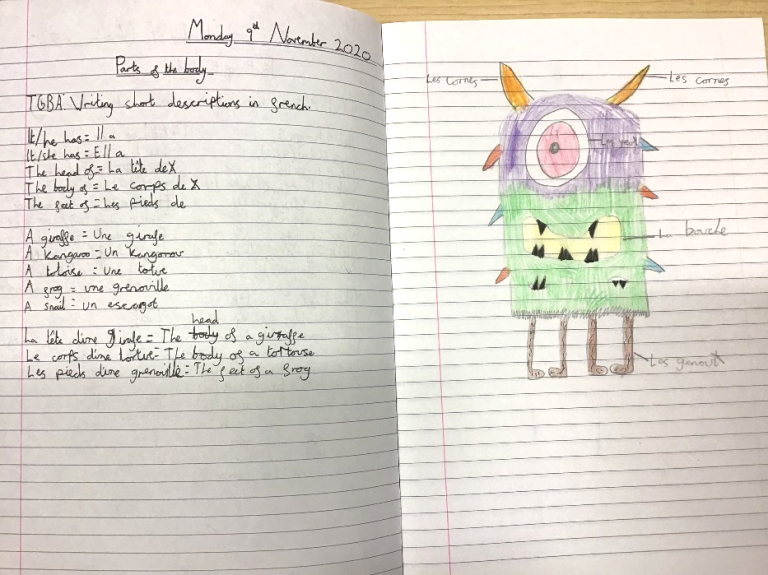 Monday 9th November 2020
Parts of the body
TGBA Writing short descriptions in french.
It/he has = Il a
It/she has = Ell a
The head of = La tête de X
The body of = Le corps de X
The feet of = Les pieds de
A giraffe = Une girafe
A kangaroo = Un kangorou
A totoise = Une totue
A frog = une grenouille
A snail = un escargot
head
La tête dune girafe = The body of a giraffe
Le corps dune tortue = The body of a tortouse
Les pieds dune grenouille = The feet of a frog
Les cornes
Les cornes
Les yeux
La bouche
Les genoux